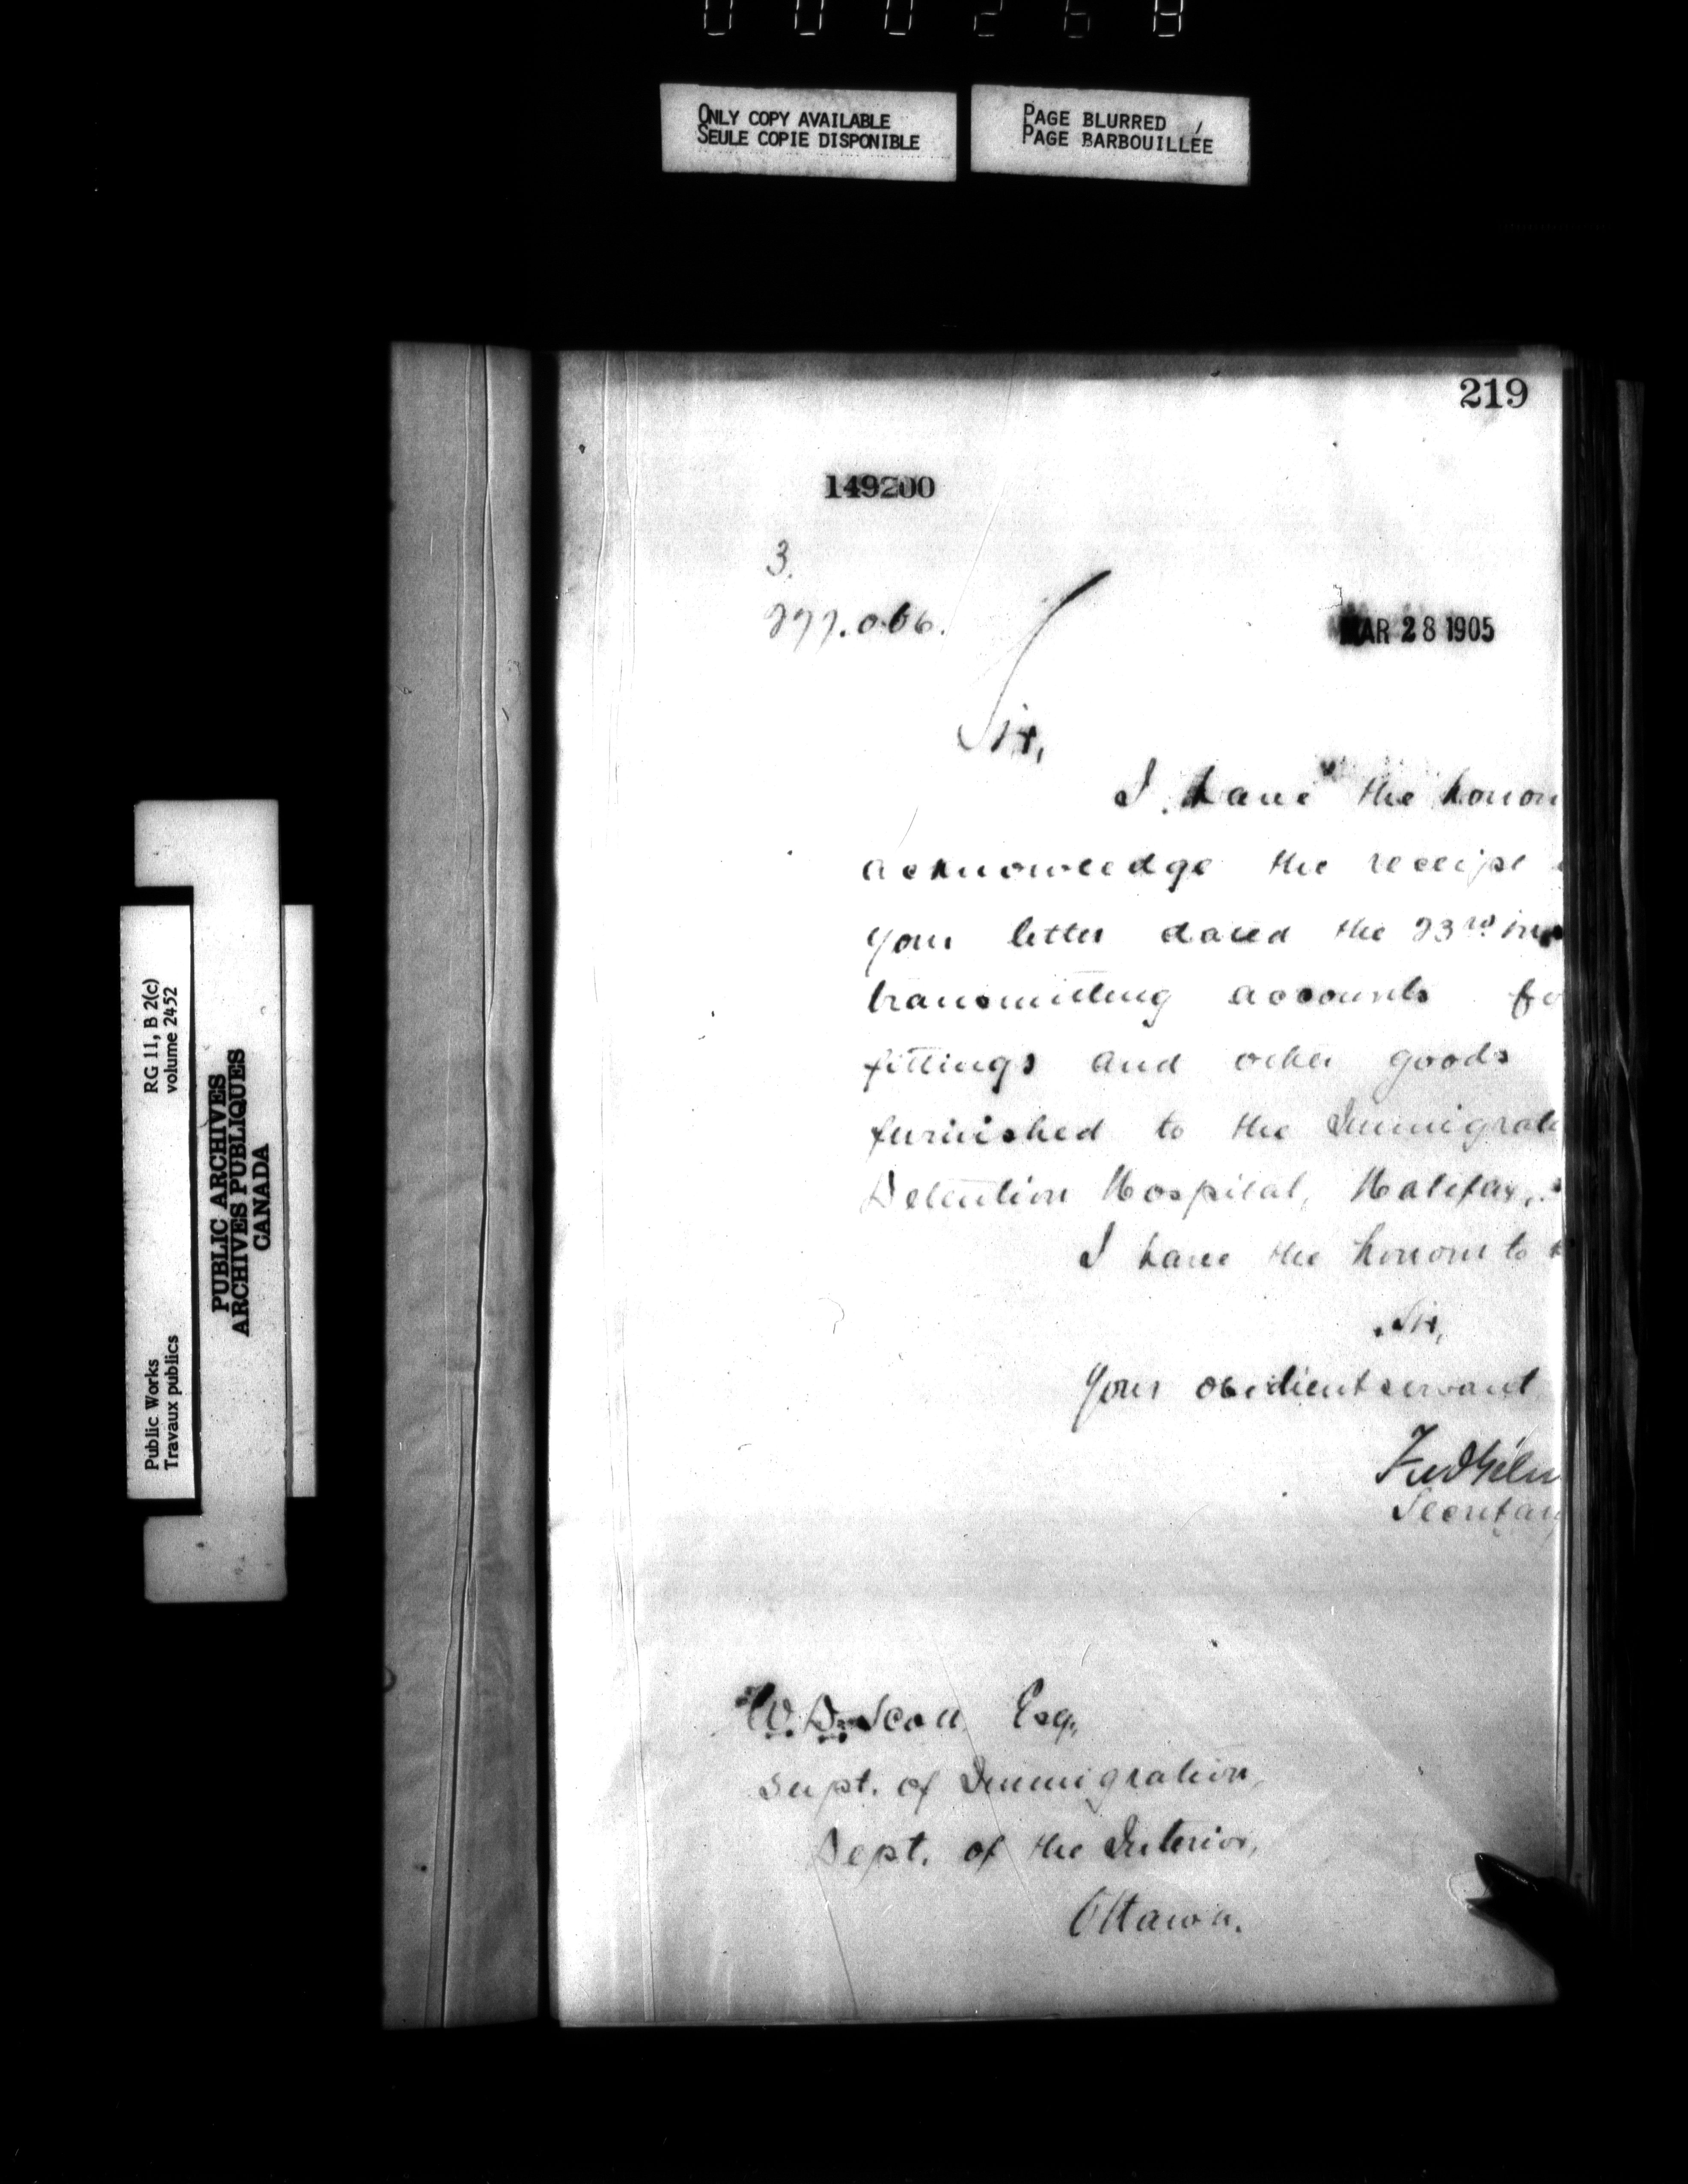 000268
ONLY COPY AVAILABLE
SEULE COPIE DISPONIBLE
PAGE BLURRED
PAGE BARBOUILLÉE
219
149200
3.
277.066.
MAR 28 1905
Sir,
I have the honour
acknowledge the receipt
your letter dated the 23rd ins
transmitting accounts fo
fittings and other goods
furnished to the Immigrati
Detention Hospital, Halifax,
I have the honour to
Sir,
Your obedient servant
Fred Gélin
Secretary
W. D. Scott Esq.,
Supt. of Immigration,
Dept. of the Interior,
Ottawa.
Public Works
Travaux publics
RG 11, B 2(c)
volume 2452
PUBLIC ARCHIVES
ARCHIVES PUBLIQUES
CANADA